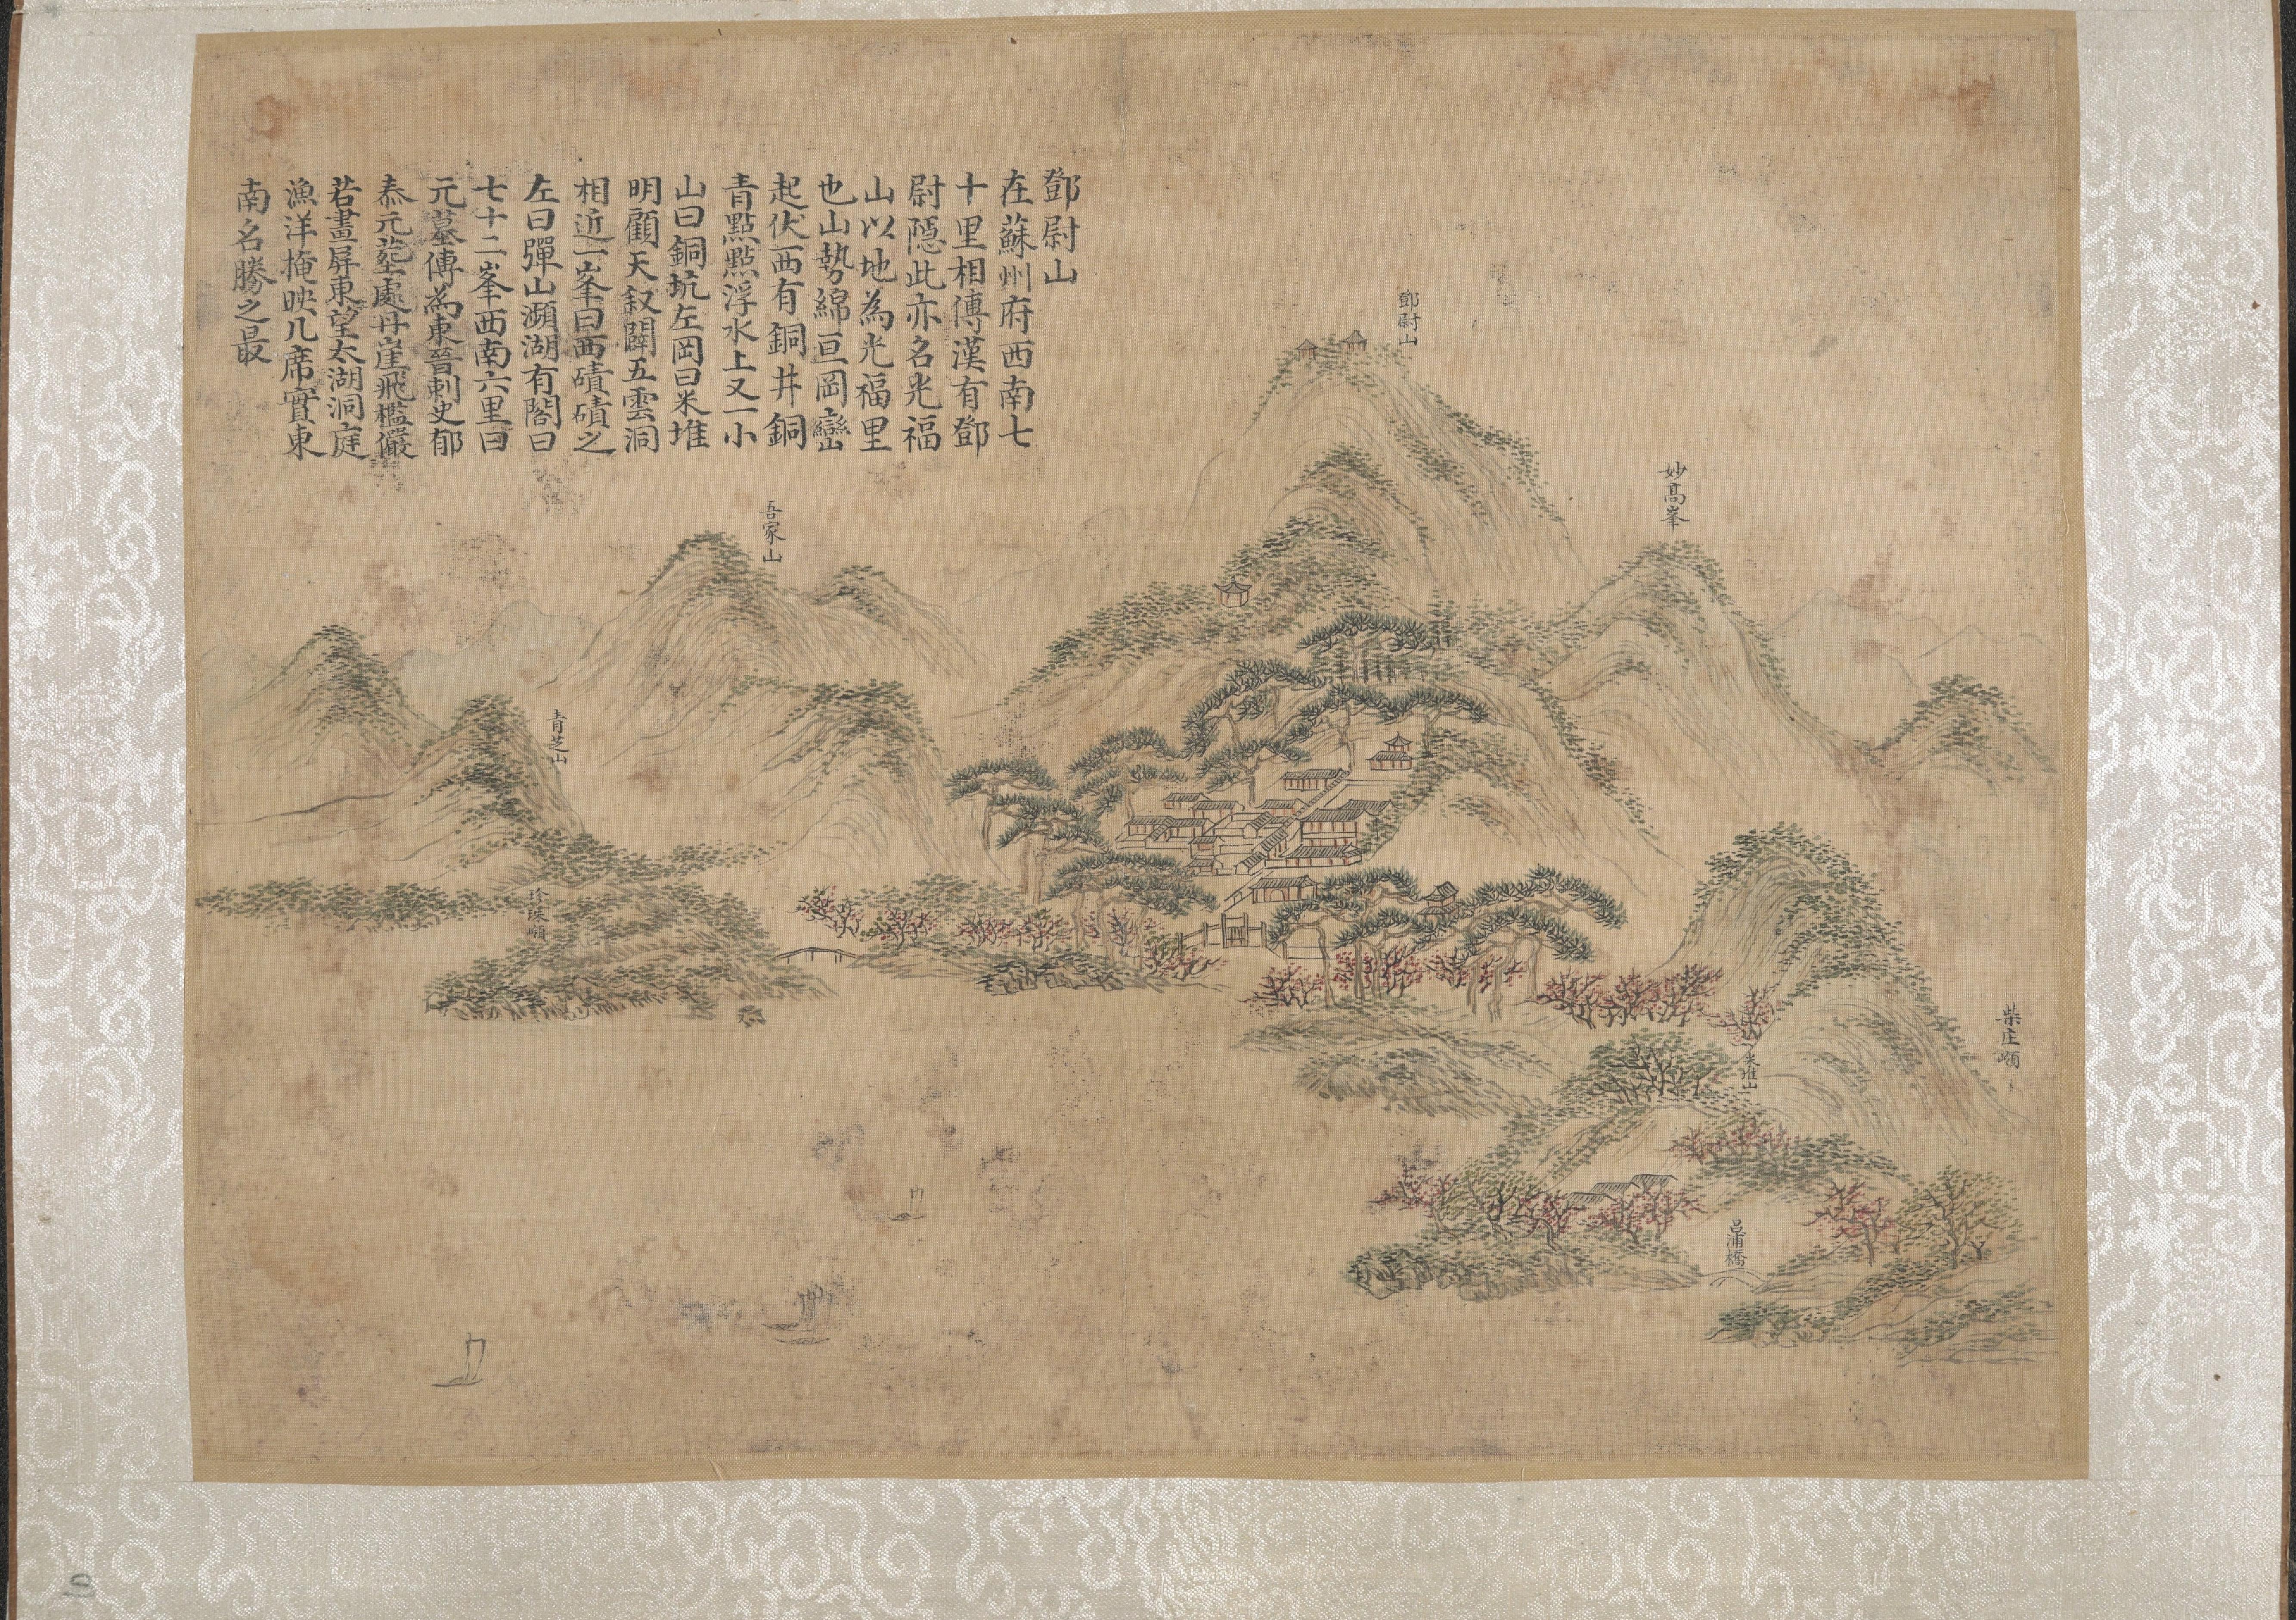 鄧尉山
在蘇州府西南七
十里相傳漢有鄧
尉隱此亦名光福
山以地為光福里
也山勢綿亘岡巒
起伏西有銅井銅
青點點浮水上又一小
山曰銅坑左岡曰米堆
明顧天叙闢五雲洞
相近一峯曰西磧磧之
左曰彈山瀕湖有閣曰
七十二峯西南六里曰
元墓傳為東晉刺史郁
泰元塟處丹崖飛檻儼
若畫屏東望太湖洞庭
漁洋掩映几席實東
南名勝之最
鄧尉山
妙高峯
吾家山
青芝山
珍珠嶺
柴庄嶺
米堆山
呂浦橋